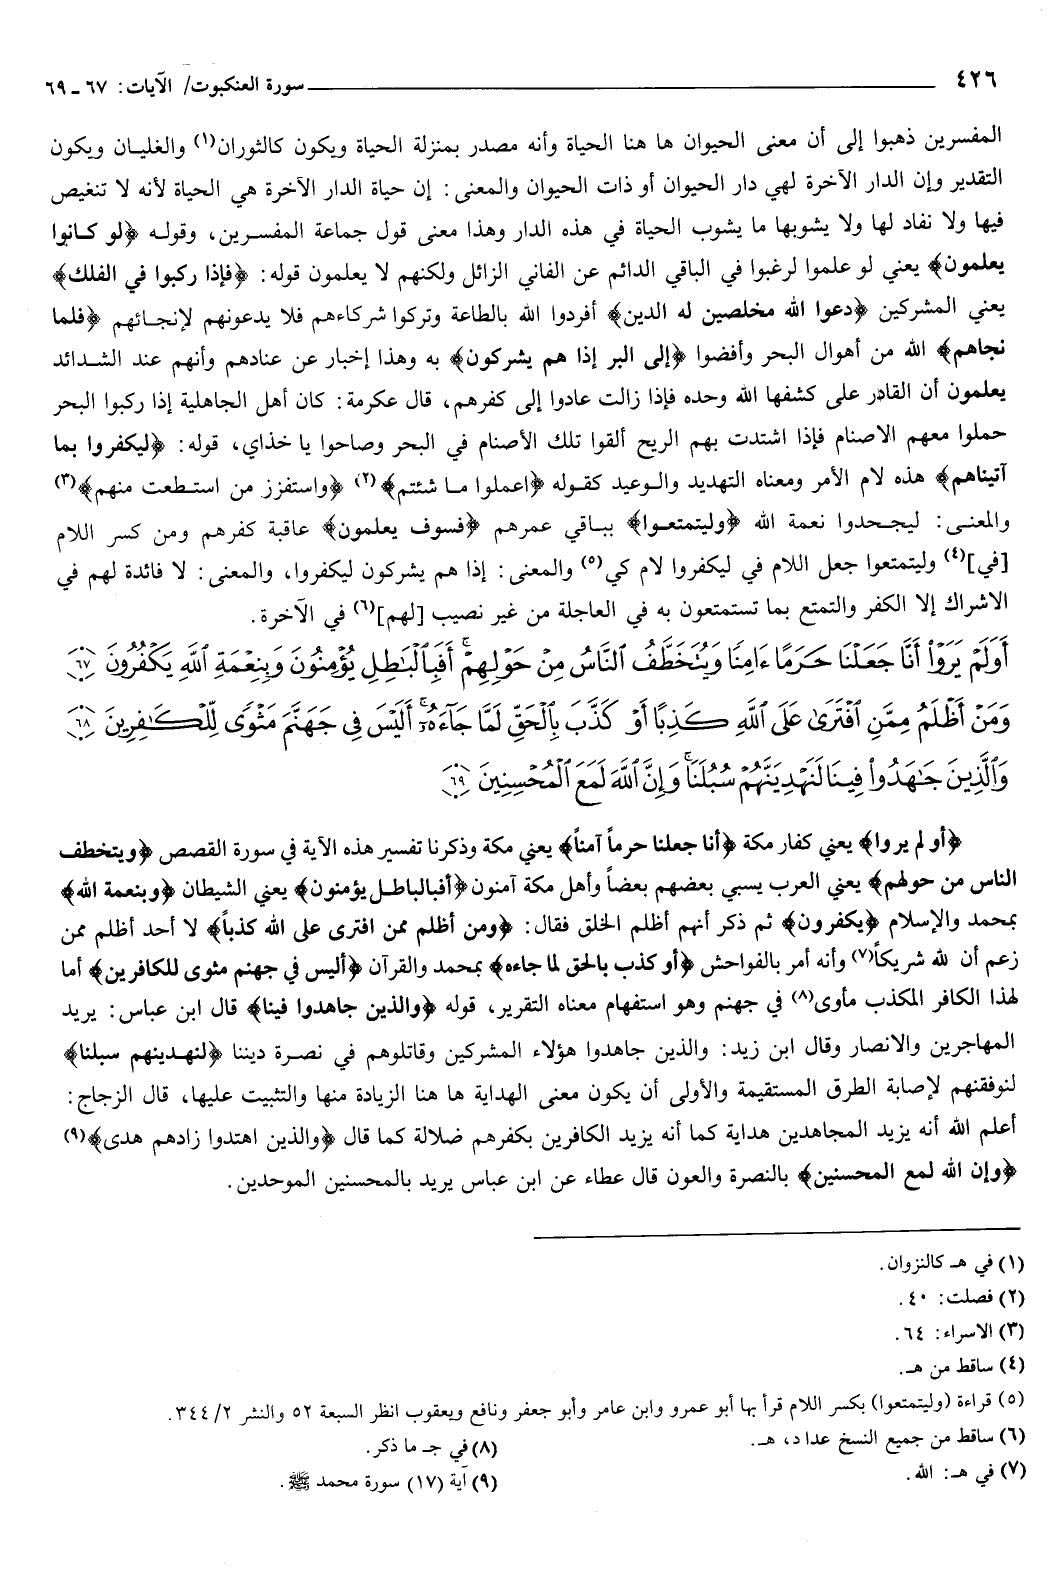 ٤٢٦ سورة العنكبوت/ الآيات: ٦٧ ـ ٦٩
المفسرين ذهبوا إلى أن معنى الحيوان ها هنا الحياة وأنه مصدر بمنزلة الحياة ويكون كالثوران(١) والغليـان ويكون
التقدير وإن الدار الآخرة لهي دار الحيوان أو ذات الحيوان والمعنى: إن حياة الدار الآخرة هي الحياة لأنه لا تنغيص
فيها ولا نفاد لها ولا يشوبها ما يشوب الحياة في هذه الدار وهذا معنى قول جماعة المفسـرين، وقولـه ﴿لو كـانوا
يعلمون﴾ يعني لو علموا لرغبوا في الباقي الدائم عن الفاني الزائل ولكنهم لا يعلمون قوله: ﴿فإذا ركبوا في الفلك﴾
يعني المشركين ﴿دعوا الله مخلصين له الدين﴾ أفردوا الله بالطاعة وتركوا شركاءهم فلا يدعونهم لإنجـائهم ﴿فلما
نجاهم﴾ الله من أهوال البحر وأفضوا ﴿إلى البر إذا هم يشركون﴾ به وهذا إخبار عن عنادهم وأنهم عند الشـدائد
يعلمون أن القادر على كشفها الله وحده فإذا زالت عادوا إلى كفرهم، قال عكرمة: كان أهل الجاهلية إذا ركبوا البحر
حملوا معهم الاصنام فإذا اشتدت بهم الريح ألقوا تلك الأصنام في البحر وصاحوا يا خذاي، قوله: ﴿ليكفروا بما
آتيناهم﴾ هذه لام الأمر ومعناه التهديد والـوعيد كقـوله ﴿اعملوا مـا شئتم﴾(٢) ﴿واستفزز من استـطعت منهم﴾(٣)
والمعنـى: ليجـحدوا نعمة الله ﴿وليتمتعـوا﴾ بباقي عمرهم ﴿فسوف يعلمون﴾ عاقبة كفرهم ومن كسر اللام
[في](٤) وليتمتعوا جعل اللام في ليكفروا لام كي(٥) والمعنى: إذا هم يشركون ليكفروا، والمعنى: لا فائدة لهم في
الاشراك إلا الكفر والتمتع بما تستمتعون به في العاجلة من غير نصيب [لهم](٦) في الآخرة.
أَوَلَمْ يَرَوْا۟ أَنَّا جَعَلْنَا حَرَمًا ءَامِنًا وَيُتَخَطَّفُ ٱلنَّاسُ مِنْ حَوْلِهِمْ ۚ أَفَبِٱلْبَٰطِلِ يُؤْمِنُونَ وَبِنِعْمَةِ ٱللَّهِ يَكْفُرُونَ ٦٧
وَمَنْ أَظْلَمُ مِمَّنِ ٱفْتَرَىٰ عَلَى ٱللَّهِ كَذِبًا أَوْ كَذَّبَ بِٱلْحَقِّ لَمَّا جَآءَهُۥٓ ۚ أَلَيْسَ فِى جَهَنَّمَ مَثْوًى لِّلْكَٰفِرِينَ ٦٨
وَٱلَّذِينَ جَٰهَدُوا۟ فِينَا لَنَهْدِيَنَّهُمْ سُبُلَنَا ۚ وَإِنَّ ٱللَّهَ لَمَعَ ٱلْمُحْسِنِينَ ٦٩
﴿أو لم يروا﴾ يعني كفار مكة ﴿أنا جعلنا حرماً آمناً﴾ يعني مكة وذكرنا تفسير هذه الآية في سورة القصص ﴿ويتخطف
الناس من حولهم﴾ يعني العرب يسبي بعضهم بعضاً وأهل مكة آمنون ﴿أفبالباطـل يؤمنون﴾ يعني الشيطان ﴿وبنعمة الله﴾
بمحمد والإسلام ﴿يكفرون﴾ ثم ذكر أنهم أظلم الخلق فقال: ﴿ومن أظلم ممن افترى على الله كذباً﴾ لا أحد أظلم ممن
زعم أن لله شريكاً(٧) وأنه أمر بالفواحش ﴿أو كذب بالحق لما جاءه﴾ بمحمد والقرآن ﴿أليس في جهنم مثوى للكافرين﴾ أما
لهذا الكافر المكذب مأوى(٨) في جهنم وهو استفهام معناه التقرير، قوله ﴿والذين جاهدوا فينا﴾ قال ابن عباس: يريد
المهاجرين والانصار وقال ابن زيد: والذين جاهدوا هؤلاء المشركين وقاتلوهم في نصـرة ديننا ﴿لنهـدينهم سبلنا﴾
لنوفقنهم لإصابة الطرق المستقيمة والأولى أن يكون معنى الهداية ها هنا الزيادة منها والتثبيت عليها، قال الزجاج:
أعلم الله أنه يزيد المجاهدين هداية كما أنه يزيد الكافرين بكفرهم ضلالة كما قال ﴿والذين اهتدوا زادهم هدى﴾(٩)
﴿وإن الله لمع المحسنين﴾ بالنصرة والعون قال عطاء عن ابن عباس يريد بالمحسنين الموحدين.
(١) في هـ كالنزوان.
(٢) فصلت: ٤٠.
(٣) الاسراء: ٦٤.
(٤) ساقط من هـ.
(٥) قراءة (وليتمتعوا) بكسر اللام قرأ بها أبو عمرو وابن عامر وأبو جعفر ونافع ويعقوب انظر السبعة ٥٢ والنشر ٣٤٤/٢.
(٦) ساقط من جميع النسخ عدا د، هـ.
(٧) في هـ: الله.
(٨) في جـ ما ذكر.
(٩) آية (١٧) سورة محمد ﷺ.